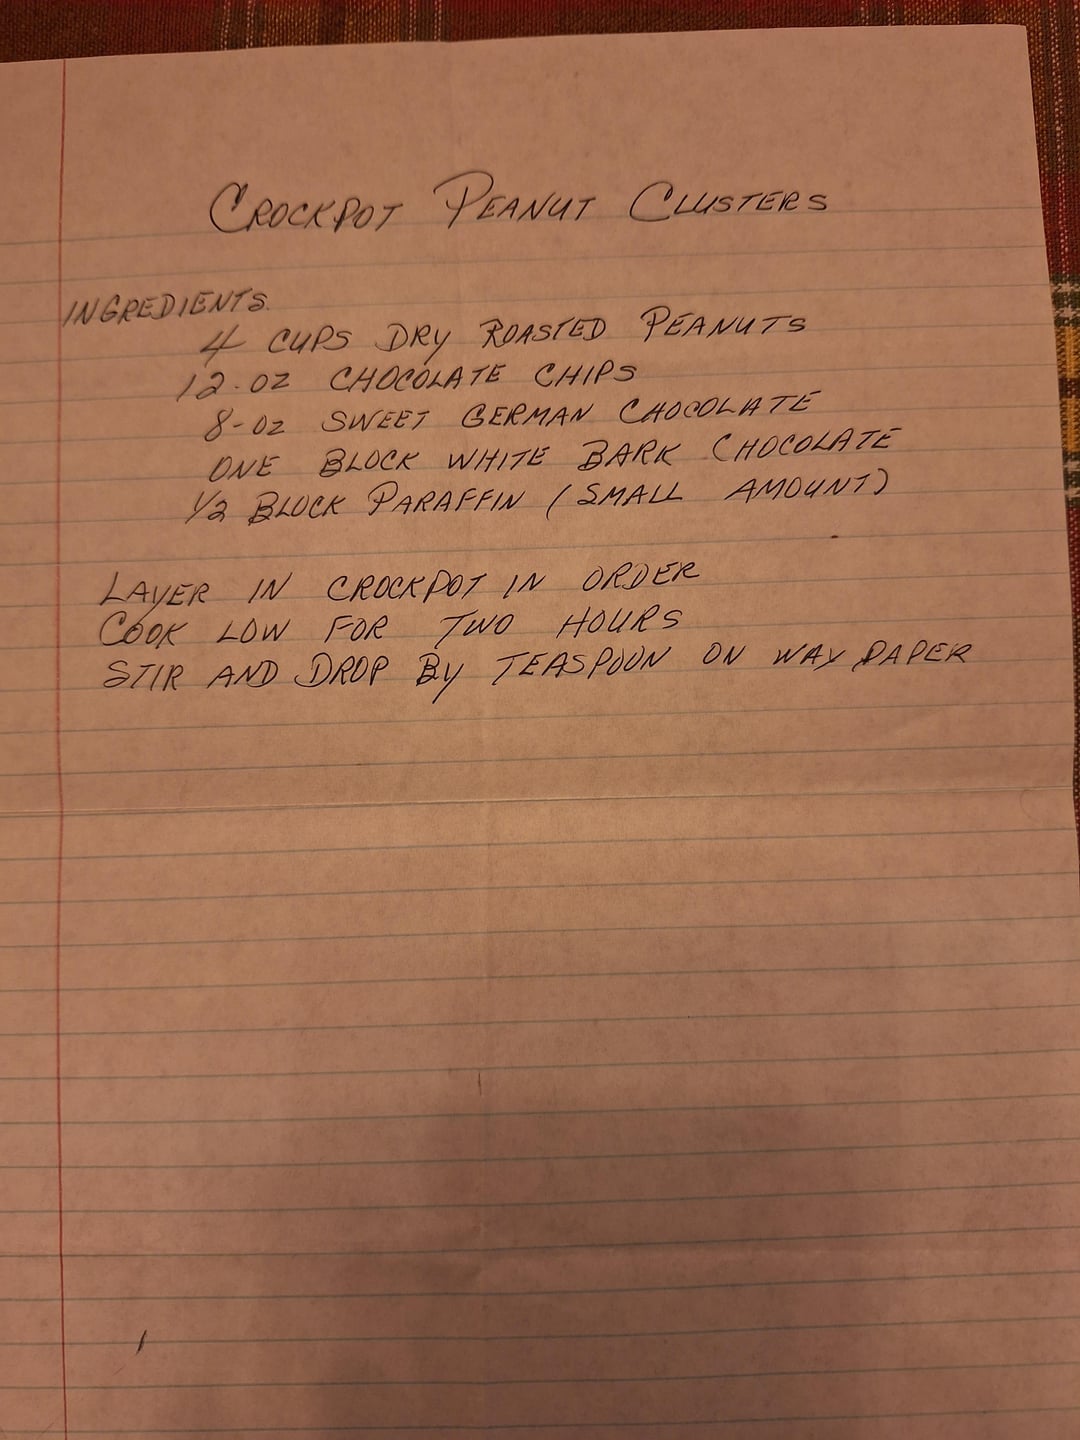 CROCKPOT PEANUT CLUSTERS
INGREDIENTS.
4 CUPS DRY ROASTED PEANUTS
12-OZ CHOCOLATE CHIPS
8-OZ SWEET GERMAN CHOCOLATE
ONE BLOCK WHITE BARK CHOCOLATE
1/2 BLOCK PARAFFIN (SMALL AMOUNT)
LAYER IN CROCKPOT IN ORDER
COOK LOW FOR TWO HOURS
STIR AND DROP BY TEASPOON ON WAX PAPER